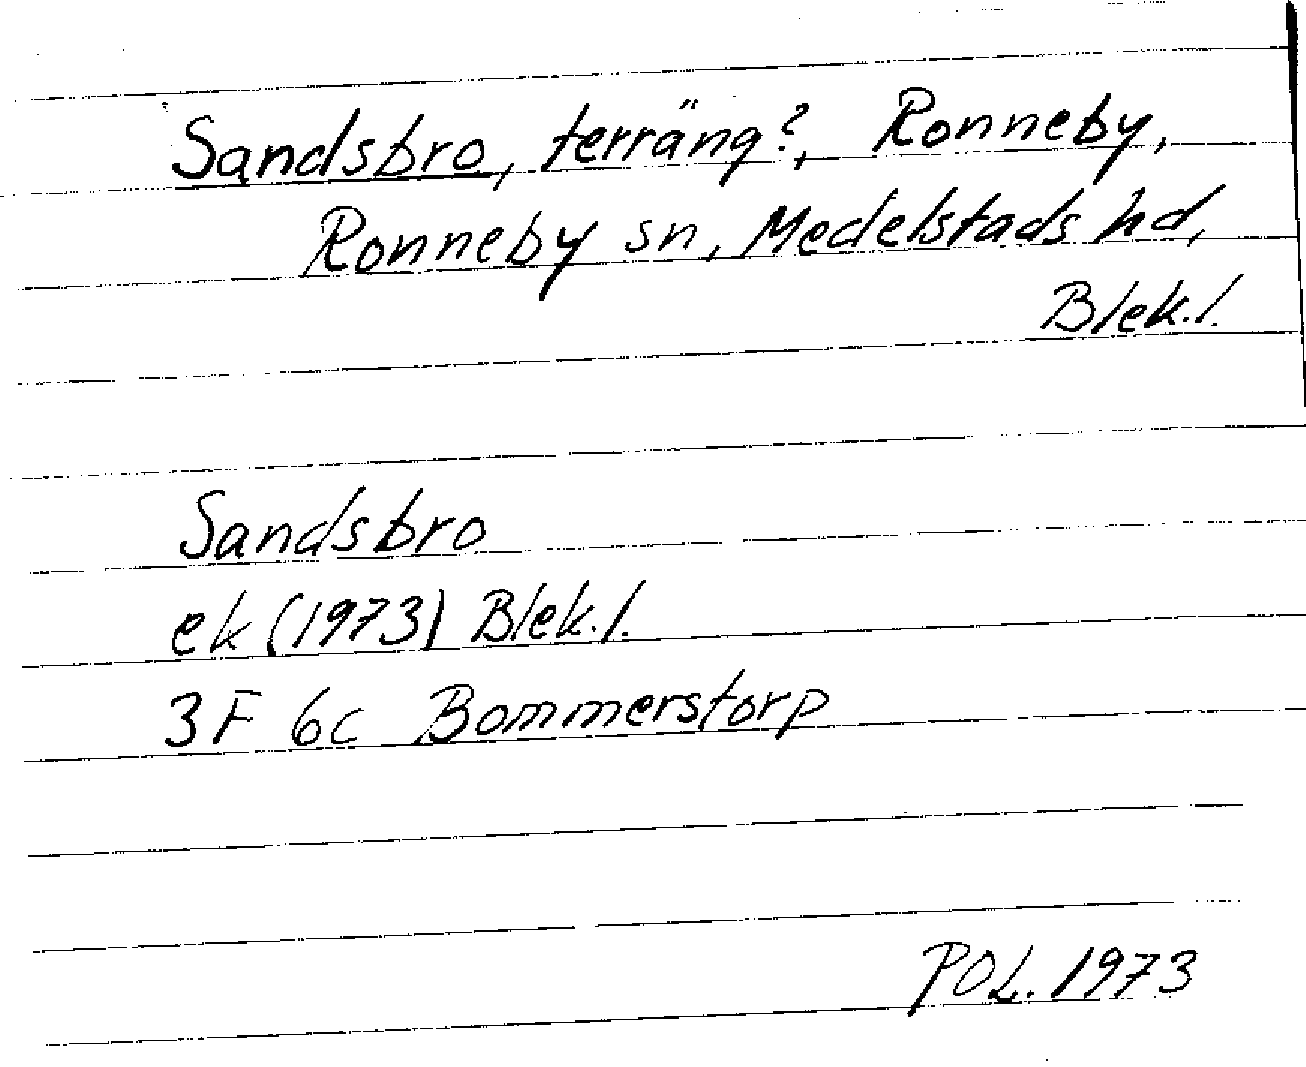 Sandsbro, terräng?, Ronneby,
Ronneby sn, Medelstads hd,
Blek.l.
Sandsbro
ek (1973) Blek.l.
3F 6c Bommerstorp
POL. 1973